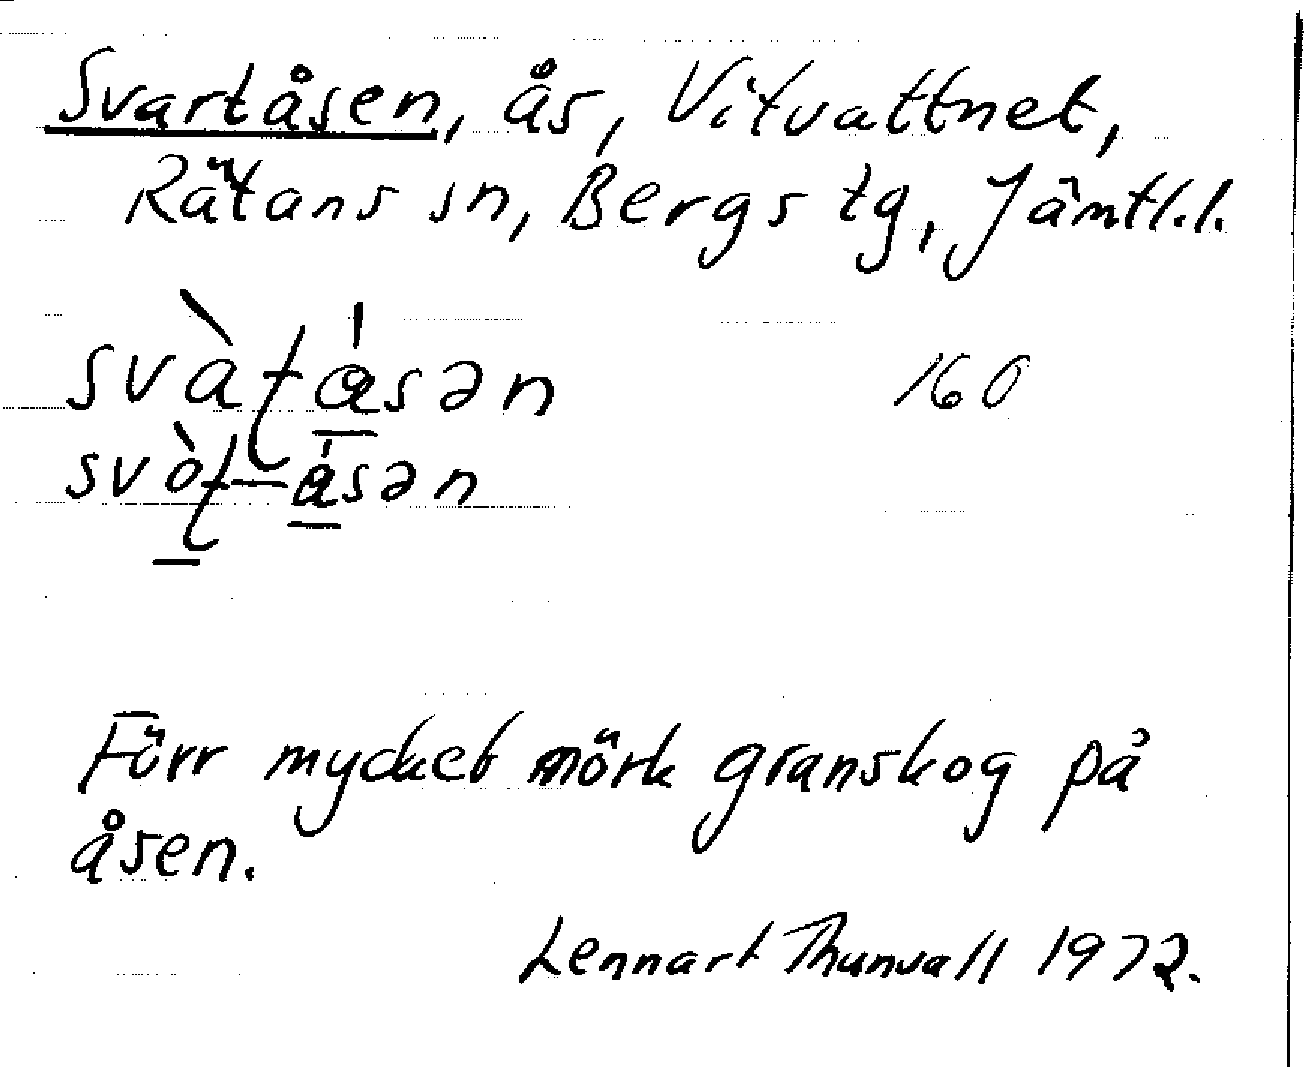 Svartåsen, ås, Vitvattnet,
Rätans sn, Bergs tg, Jämtl.l.
svàʈɑ́sən 160
svòʈ-ɑ́sən
Förr mycket mörk granskog på
åsen.
Lennart Thunvall 1972.